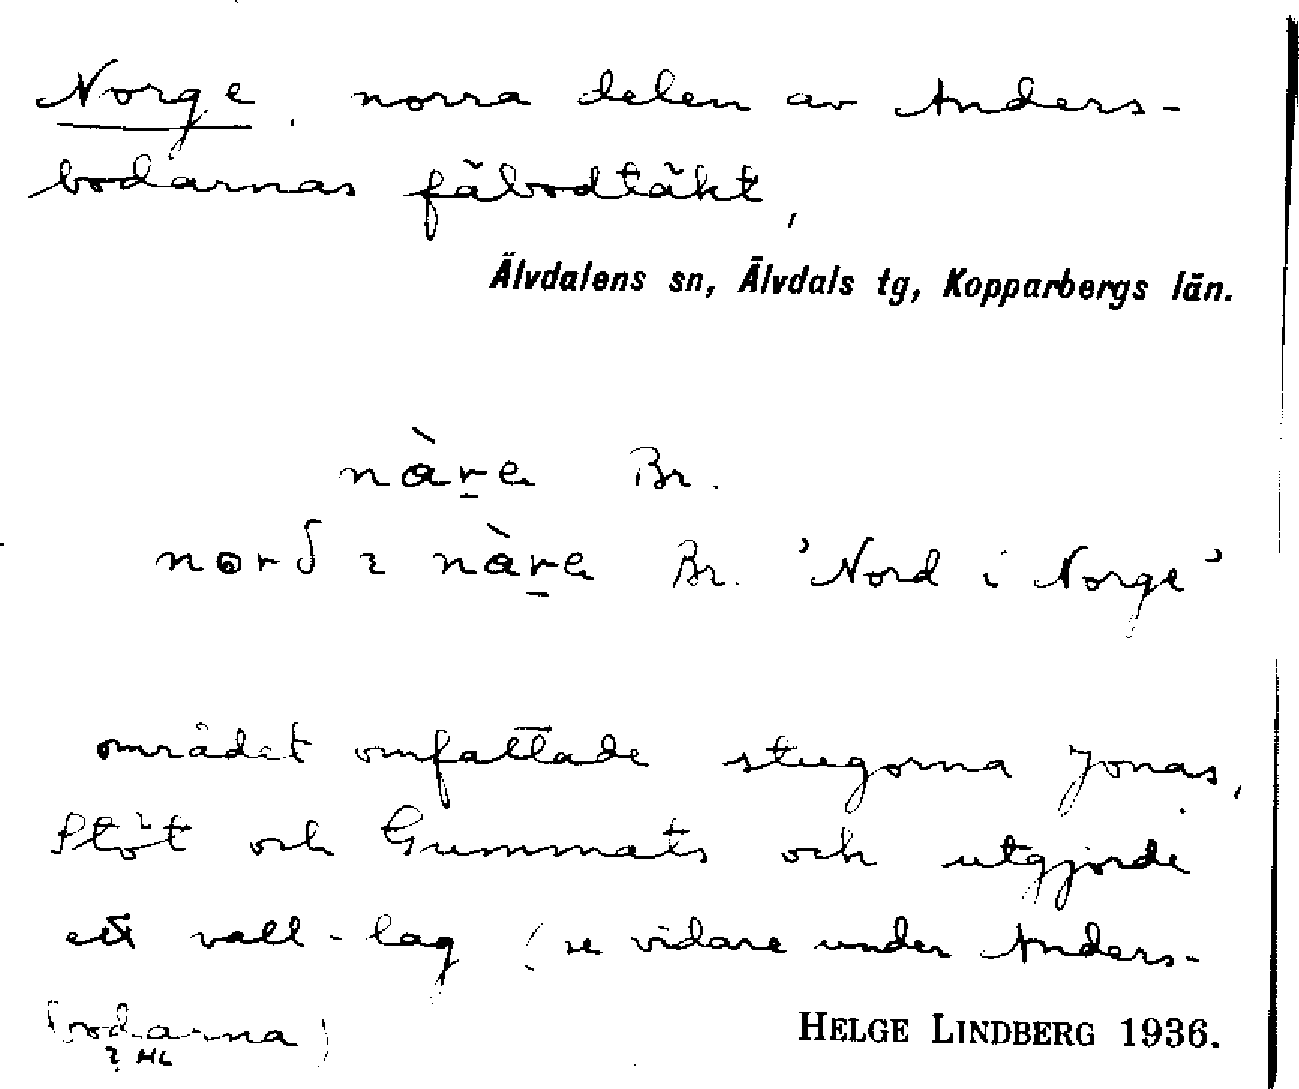 Norge, norra delen av Anders-
bodarnas fäbodtäkt,
Älvdalens sn, Älvdals tg, Kopparbergs län.
nàre Br.
nord ɪ nàre Br. 'Nord i Norge'
området omfattade stugorna Jonas,
Stöt och Gummats och utgjorde
ett vall-lag (se vidare under Anders-
bodarna)
HELGE LINDBERG 1936.